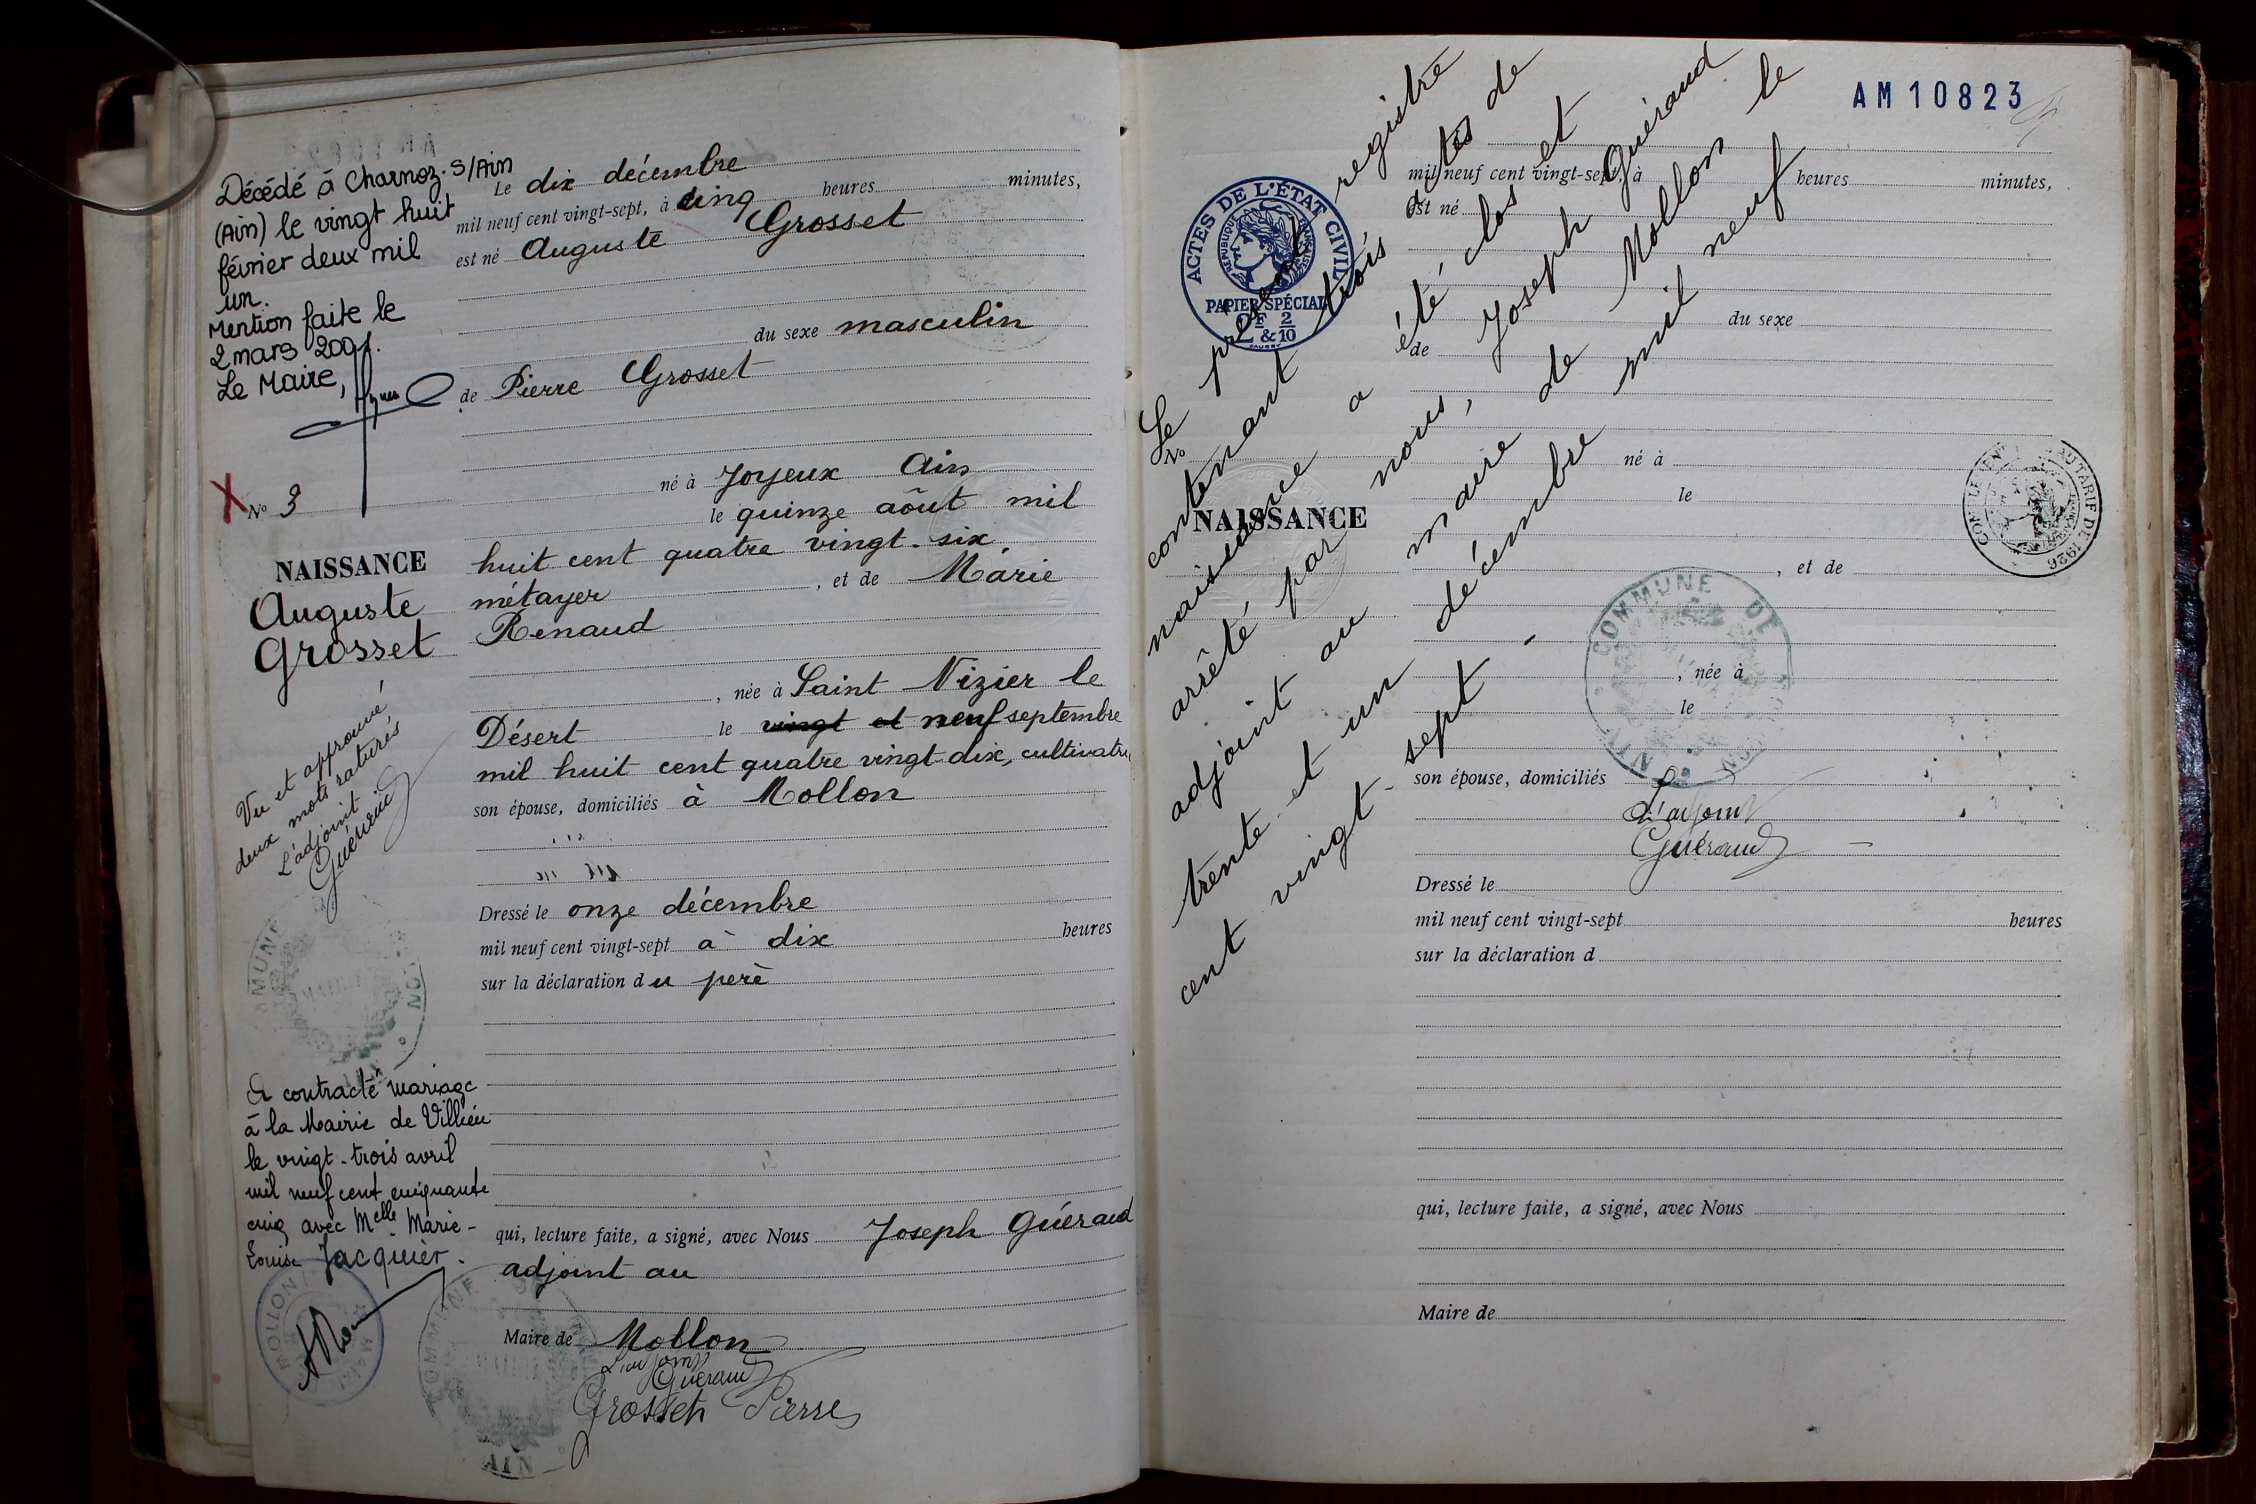 Décédé à Charnoz. s/Ain
(Ain) le vingt huit
février deux mil
un.
Mention faite le
2 mars 2001.
Le Maire,
X No 3
NAISSANCE
Auguste
Grosset
Vu et approuvé
deux mots raturés
L'adjoint
Guéraud
A contracté mariage
à la Mairie de Villieu
le vingt-trois avril
mil neuf cent cinquante
cinq avec Melle Marie-
Louise Jacquier.
MOLLON
Le dix décembre
mil neuf cent vingt-sept, à cinq heures minutes,
est né Auguste Grosset
du sexe masculin
de Pierre Grosset
né à Joyeux Ain
le quinze août mil
huit cent quatre vingt-six
métayer, et de Marie
Renaud
, née à Saint Nizier le
Désert le vingt et neuf septembre
mil huit cent quatre vingt dix, cultivatri
son épouse, domiciliés à Mollon
Dressé le onze décembre
mil neuf cent vingt-sept à dix heures
sur la déclaration du père
qui, lecture faite, a signé, avec Nous Joseph Guéraud
adjoint au
Maire de Mollon
L'adjoint
Guéraud
Grosset Pierre
AM10823
ACTES DE L'ÉTAT CIVIL
RÉPUBLIQUE FRANÇAISE
PAPIER SPÉCIAL
2F 2/10
&
mil neuf cent vingt-sept, à heures minutes,
est né
du sexe
de
No
NAISSANCE
né à
le
, et de
, née à
le
COMMUNE DE
son épouse, domiciliés
L'adjoint
Guéraud
Dressé le
mil neuf cent vingt-sept heures
sur la déclaration d
qui, lecture faite, a signé, avec Nous
Maire de
Le présent registre
contenant trois actes de
naissance a été clos et
arrêté par nous, Joseph Guéraud
adjoint au maire de Mollon le
trente-et-un décembre mil neuf
cent vingt-sept -